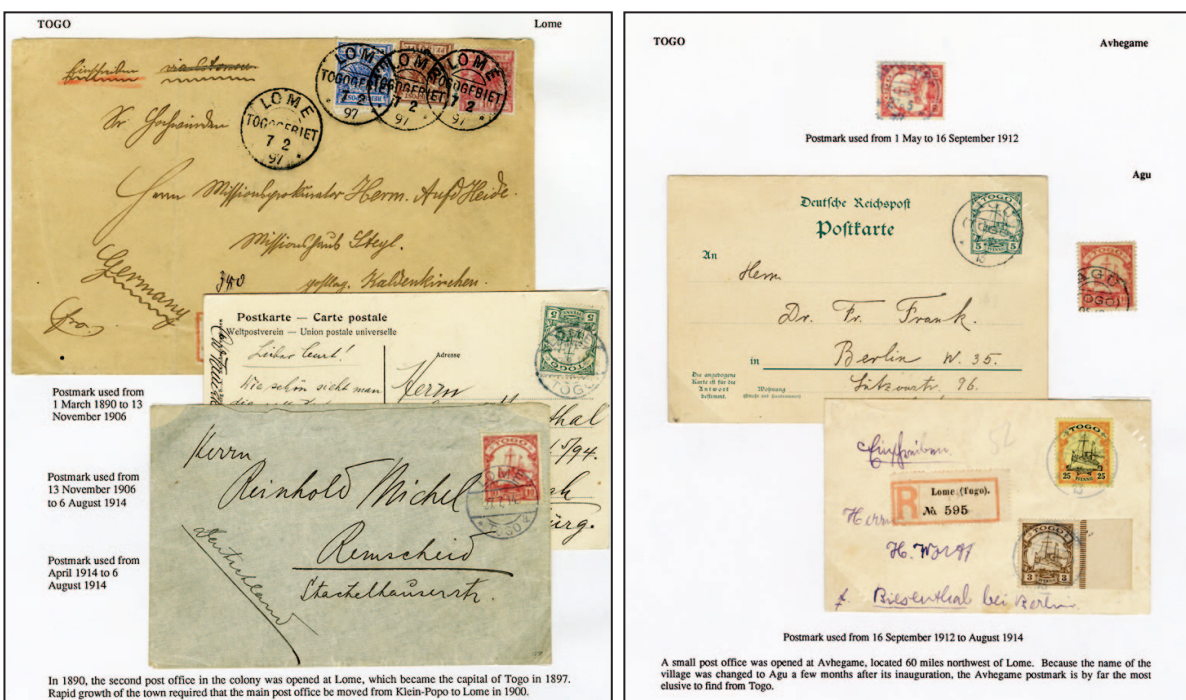 TOGO
Lome
Einschreiben via Cotonou
LOME
TOGOGEBIET
7 2
97
LOME
TOGOGEBIET
7 2
97
LOME
TOGOGEBIET
7 2
97
LOME
TOGOGEBIET
7 2
97
Sr Hochwürden
Herrn Missionsprokurator Herm. Auf d Heide.
Missionshaus Steyl.
postlag. Kaldenkirchen.
Germany
340
Postkarte — Carte postale
Weltpostverein — Union postale universelle
Adresse
Lieber Curt!
Wie schön sieht man
Herrn
TOGO
Postmark used from
1 March 1890 to 13
November 1906
Herrn
Reinhold Michel
Remscheid
Stachelhauserstr.
Deutschland
TOGO
10 10
LOME
Postmark used from
13 November 1906
to 6 August 1914
Postmark used from
April 1914 to 6
August 1914
In 1890, the second post office in the colony was opened at Lome, which became the capital of Togo in 1897.
Rapid growth of the town required that the main post office be moved from Klein-Popo to Lome in 1900.
TOGO
Avhegame
Postmark used from 1 May to 16 September 1912
Agu
Deutsche Reichspost
Postkarte
5 5
An
Herrn
Dr. Fr. Frank.
in Berlin W. 35.
Lützowstr. 96.
Die angebogene
Karte ist für die
Antwort
bestimmt.
Wohnung
(Straße und Hausnummer)
TOGO
AGU
TOGO
Einschreiben
52
TOGO
25 25
PFENNIG
R
Lome (Togo).
№ 595
Herrn
TOGO
3 3
PFENNIG
Biesenthal bei Berlin.
Postmark used from 16 September 1912 to August 1914
A small post office was opened at Avhegame, located 60 miles northwest of Lome. Because the name of the
village was changed to Agu a few months after its inauguration, the Avhegame postmark is by far the most
elusive to find from Togo.